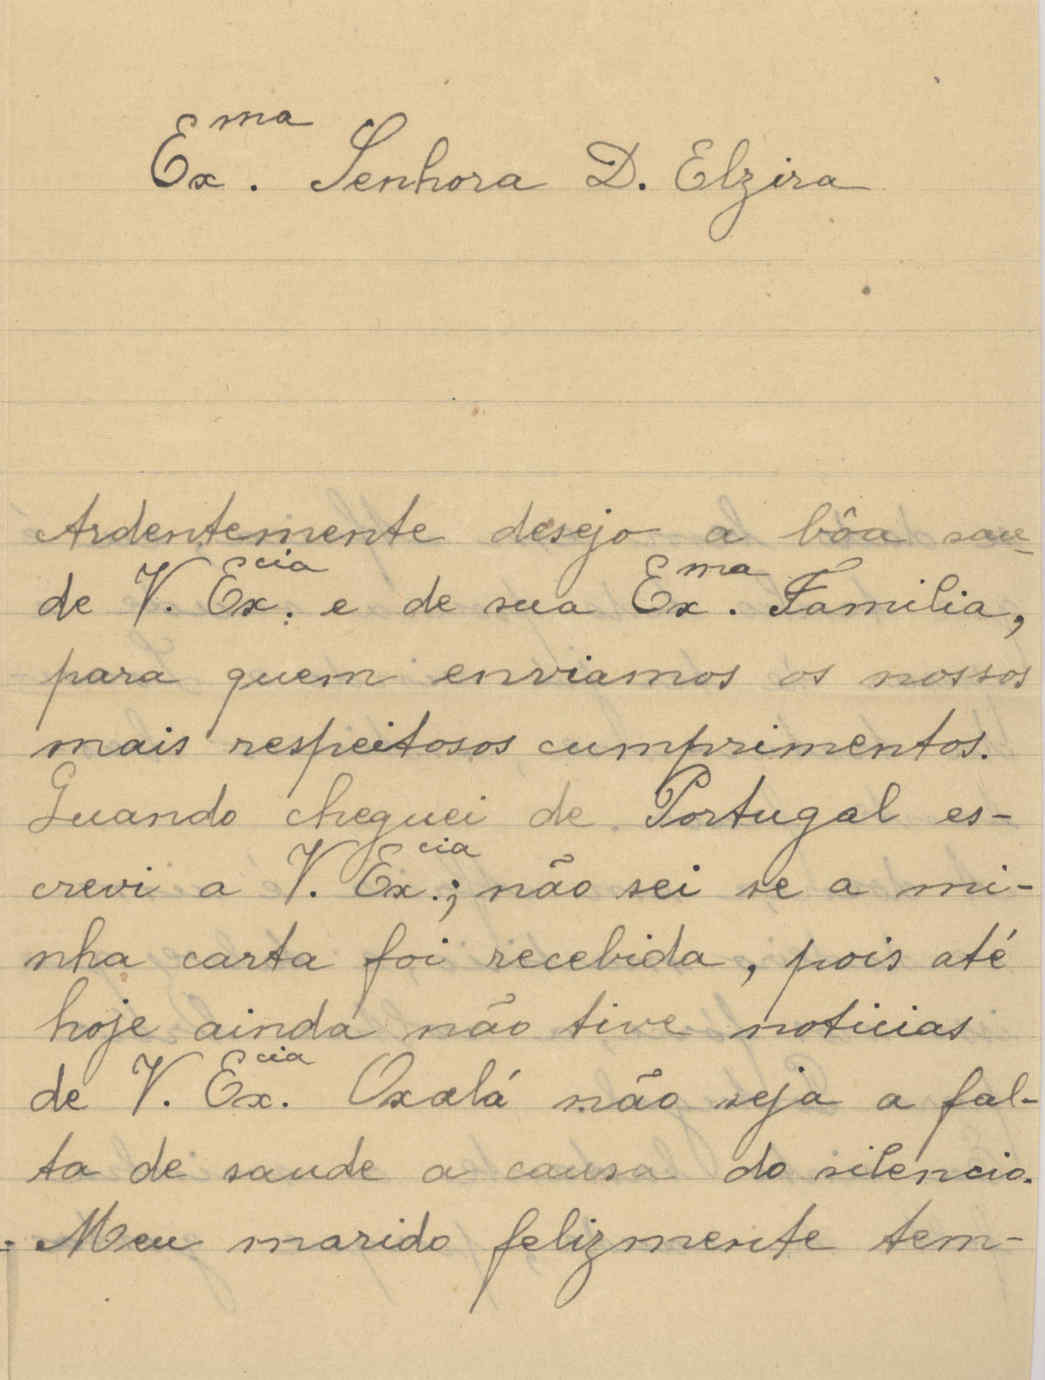 Ex.ma Senhora D. Elzira
Ardentemente desejo a bôa sau-
de V. Ex.cia e de sua Ex.ma Familia,
para quem enviamos os nossos
mais respeitosos cumprimentos.
Quando cheguei de Portugal es-
crevi a V. Ex.cia; não sei se a mi-
nha carta foi recebida, pois até
hoje ainda não tive noticias
de V. Ex.cia Oxalá não seja a fal-
ta de saude a causa do silencio.
- Meu marido felizmente tem-